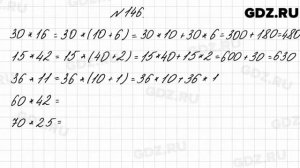 GDZ.RU
№146
30 * 16 = 30 * (10 + 6) = 30 * 10 + 30 * 6 = 300 + 180 = 480
15 * 42 = 15 * (40 + 2) = 15 * 40 + 15 * 2 = 600 + 30 = 630
36 * 11 = 36 * (10 + 1) = 36 * 10 + 36 * 1
60 * 42 =
70 * 25 =
GDZ.RU